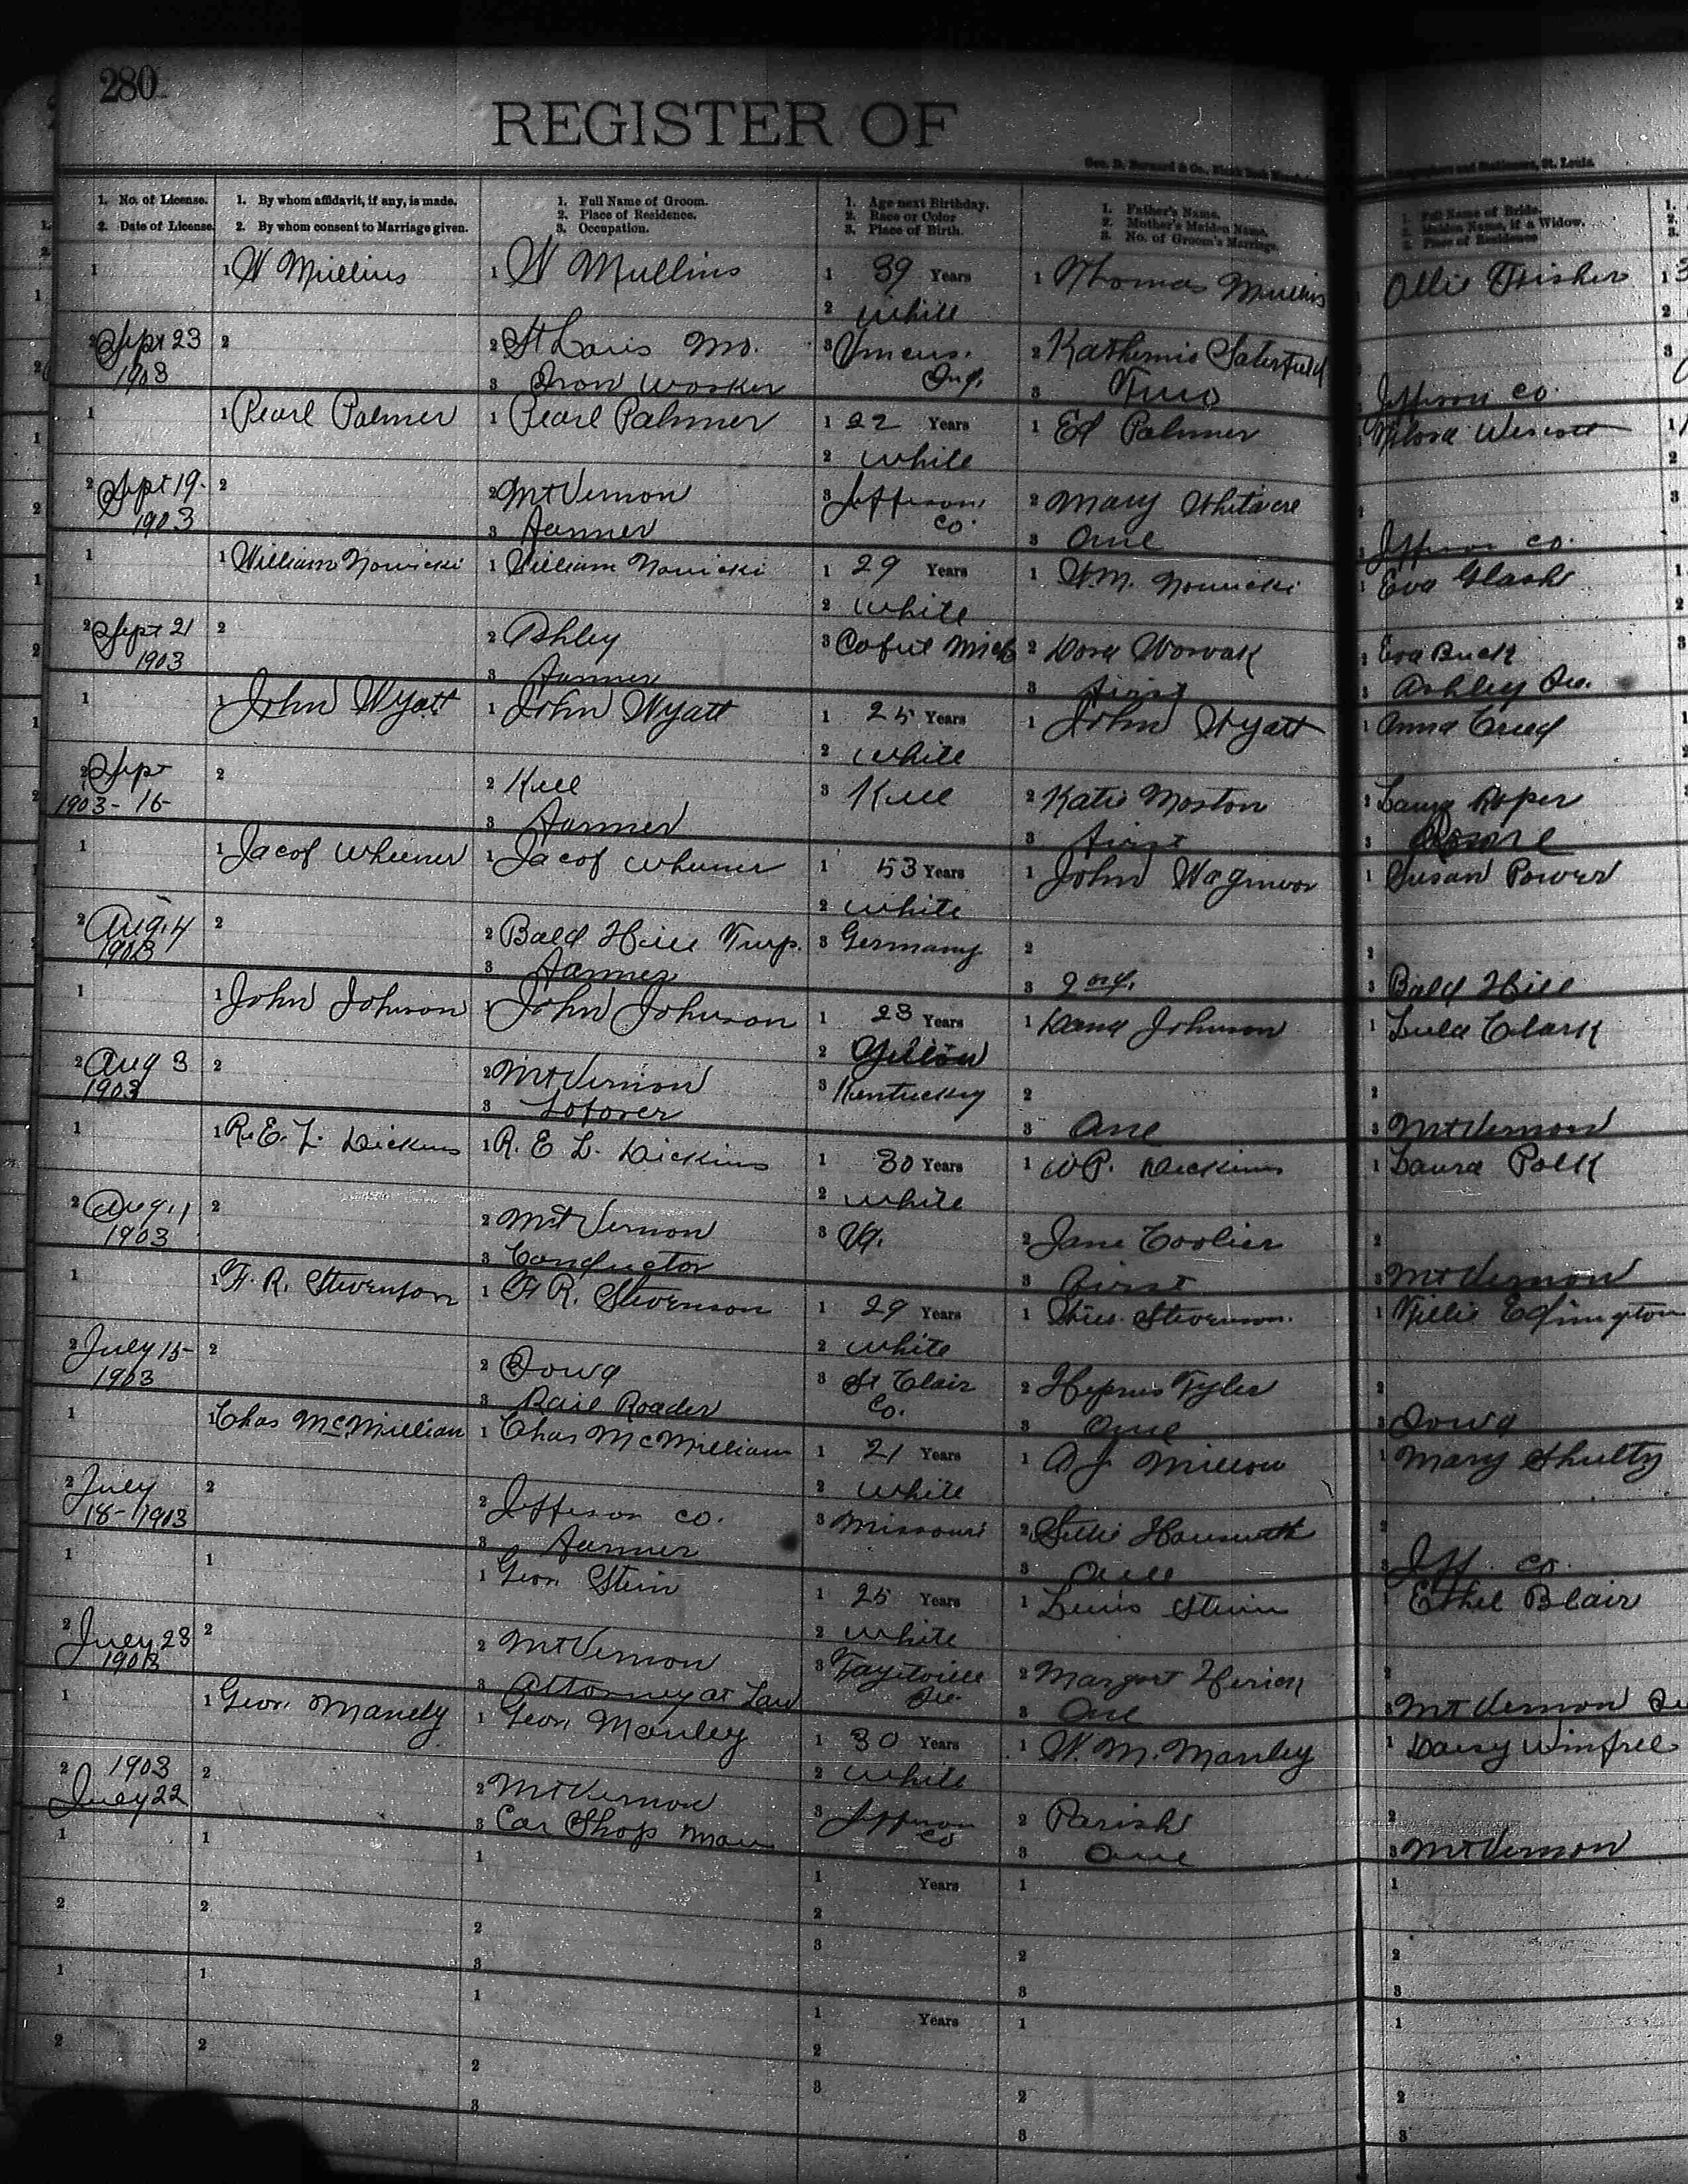 280
REGISTER OF
Geo. D. Barnard & Co., Blank Book
and Stationers, St. Louis.
1. No. of License.
2. Date of License.
1. By whom affidavit, if any, is made.
2. By whom consent to Marriage given.
1. Full Name of Groom.
2. Place of Residence.
3. Occupation.
1. Age next Birthday.
2. Race or Color
3. Place of Birth.
1. Father's Name.
2. Mother's Maiden Name.
3. No. of Groom's Marriage.
1. Full Name of Bride.
2. Maiden Name, if a Widow.
3. Place of Residence
1 1 W Mullins 1 W Mullins 1 39 Years 1 Thomas Mullins Ollie Fisher
2 white
2 Sept 23 1903 2 2 St Louis Mo. 3 Ind. 2 Satterfield
3 Iron Worker 3 Two Jefferson Co.
1 1 Pearl Palmer 1 Pearl Palmer 1 22 Years 1 Ed Palmer
2 white
2 Sept 19- 1903 2 2 Mt Vernon 3 Jefferson Co. 2 Mary Whitacre
3 Farmer 3 One 3 Jefferson Co.
1 1 William Nowicki 1 William Nowicki 1 29 Years 1 W.M. Nowicki 1 Eva Glash
2 white
2 Sept 21 1903 2 2 Ashley 3 2 Dora Worvak Eva Buck
3 Farmer 3 first 3 Ashley Ill.
1 1 John Wyatt 1 John Wyatt 1 25 Years 1 John Wyatt 1 Anna Creed
2 white
2 Sept 1903-16- 2 2 Kell 3 Kell 2 Katie Moston Roper
3 Farmer 3 first 3
1 1 Jacob Wheener 1 Jacob Wheener 1 53 Years 1 John 1 Susan Power
2 white
2 Aug. 4 1903 2 2 Bald Hill Twp. 3 Germany 2 2
3 Farmer 3 2nd. 3 Bald Hill
1 1 John Johnson 1 John Johnson 1 23 Years 1 Dana Johnson 1 Lula Clark
2 Yellow
2 Aug 3 1903 2 2 Mt Vernon 3 Kentucky 2 2
3 3 One 3 Mt Vernon
1 1 R. E. L. Dickins 1 R. E. L. Dickins 1 30 Years 1 W P. Dickins 1 Laura Polk
2 white
2 Aug. 1 1903 2 2 Mt Vernon 3 Va. 2 Jane Coolier 2
3 Conductor 3 first 3 Mt Vernon
1 1 F. R. Stevenson 1 F. R. Stevenson 1 29 Years 1 Stevenson. 1 Edington
2 white
2 July 15- 1903 2 2 Iowa 3 St Clair Co. 2 Tyler 2
3 Rail Roader 3 One 3 Iowa
1 1 Chas McMillian 1 Chas McMillian 1 21 Years 1 A J 1 Mary Shultz
2 white
2 July 18-1903 2 2 Jefferson Co. 3 Missouri 2 2
3 Farmer 3 One 3 Jeff. Co.
1 1 1 Geor. Stein 1 25 Years 1 Louis Stein 1 Ethel Blair
2 white
2 July 28 1903 2 2 Mt Vernon 3 Ill. 2 Margart Herich 2
3 Attorney at Law 3 One 3 Mt Vernon
1 1 Geor. Manely 1 Geor. Manley 1 30 Years 1 W. M. Manley 1 Daisy Winfree
2 white
2 1903 July 22 2 2 Mt Vernon 3 Jefferson Co 2 Parish 2
3 Car Shop man 3 One 3 Mt Vernon
1 1 1 1 Years 1 1
2 2 2 2 3 2 2
3 3 3
1 1 1 1 Years 1 1
2 2 2 2 3 2 2
3 3 3